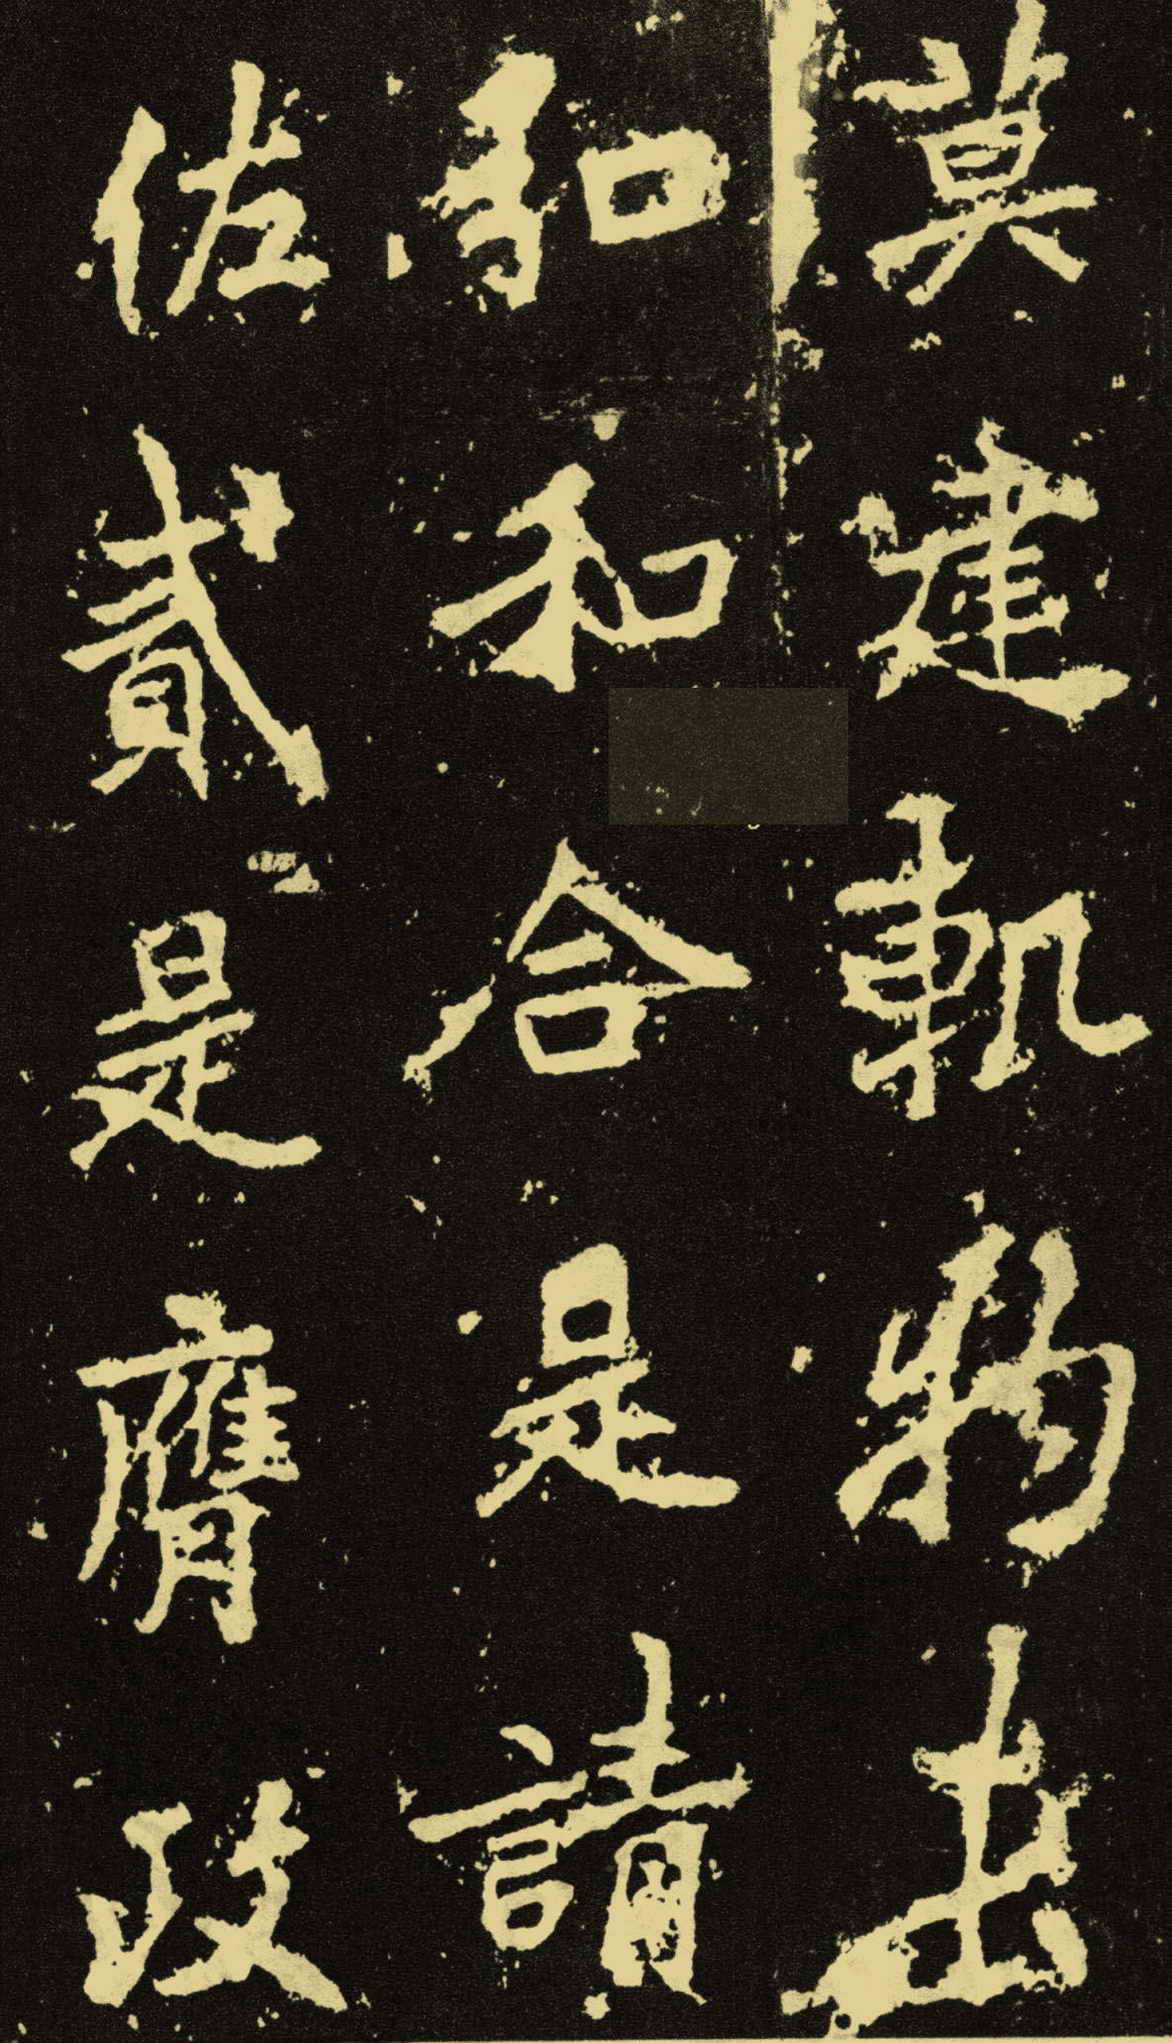 莫建軌物出
和和合是請
佐貳是膺政